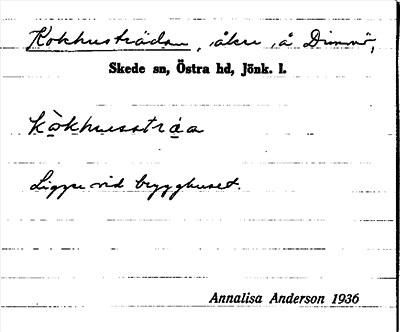 Kokhusträdan, åker å Dimmö,
Skede sn, Östra hd, Jönk. l.
kòkhusstráa
Ligger vid brygghuset.
Annalisa Anderson 1936